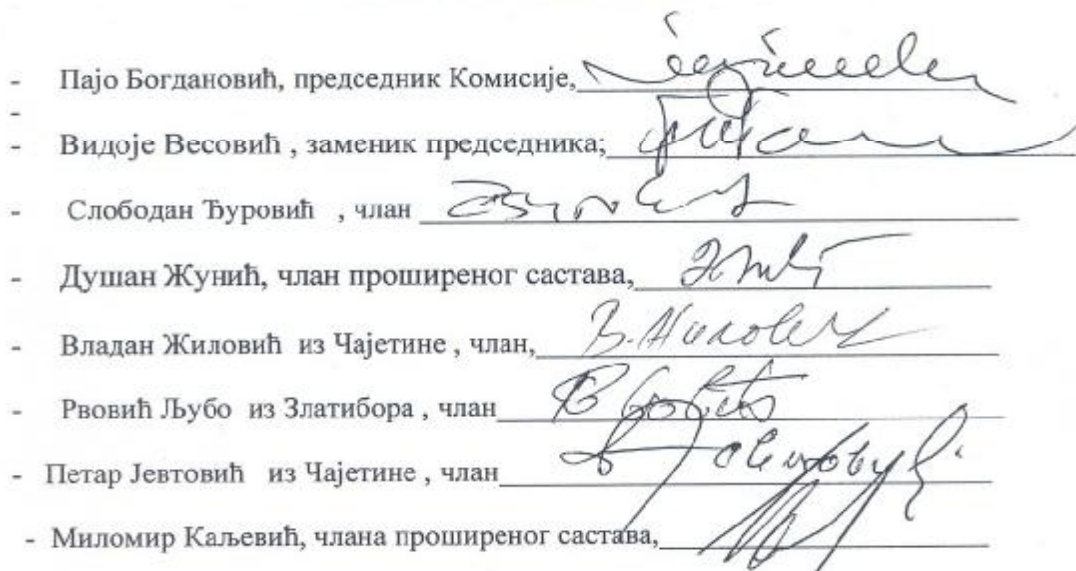 - Пајо Богдановић, председник Комисије,
-
- Видоје Весовић , заменик председника;
- Слободан Ђуровић , члан
- Душан Жунић, члан проширеног састава,
- Владан Жиловић из Чајетине , члан, В. Жиловић
- Рвовић Љубо из Златибора , члан
- Петар Јевтовић из Чајетине , члан
- Миломир Каљевић, члана проширеног састава,